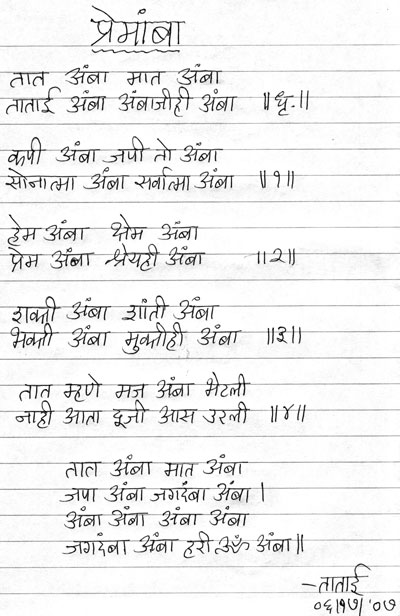 प्रेमांबा
तात अंबा मात अंबा
ताताई अंबा अंबाजीही अंबा ॥धृ.॥
कपी अंबा जपी तो अंबा
सोनात्मा अंबा सर्वात्मा अंबा ॥१॥
हेम अंबा क्षेम अंबा
प्रेम अंबा श्रेयही अंबा ॥२॥
शक्ती अंबा शांती अंबा
भक्ती अंबा मुक्तीही अंबा ॥३॥
तात म्हणे मज अंबा भेटली
नाही आता दूजी आस उरली ॥४॥
तात अंबा मात अंबा
जपा अंबा जगदंबा अंबा ।
अंबा अंबा अंबा अंबा
जगदंबा अंबा हरी ॐ अंबा॥
–ताताई
०६/१७/'०७